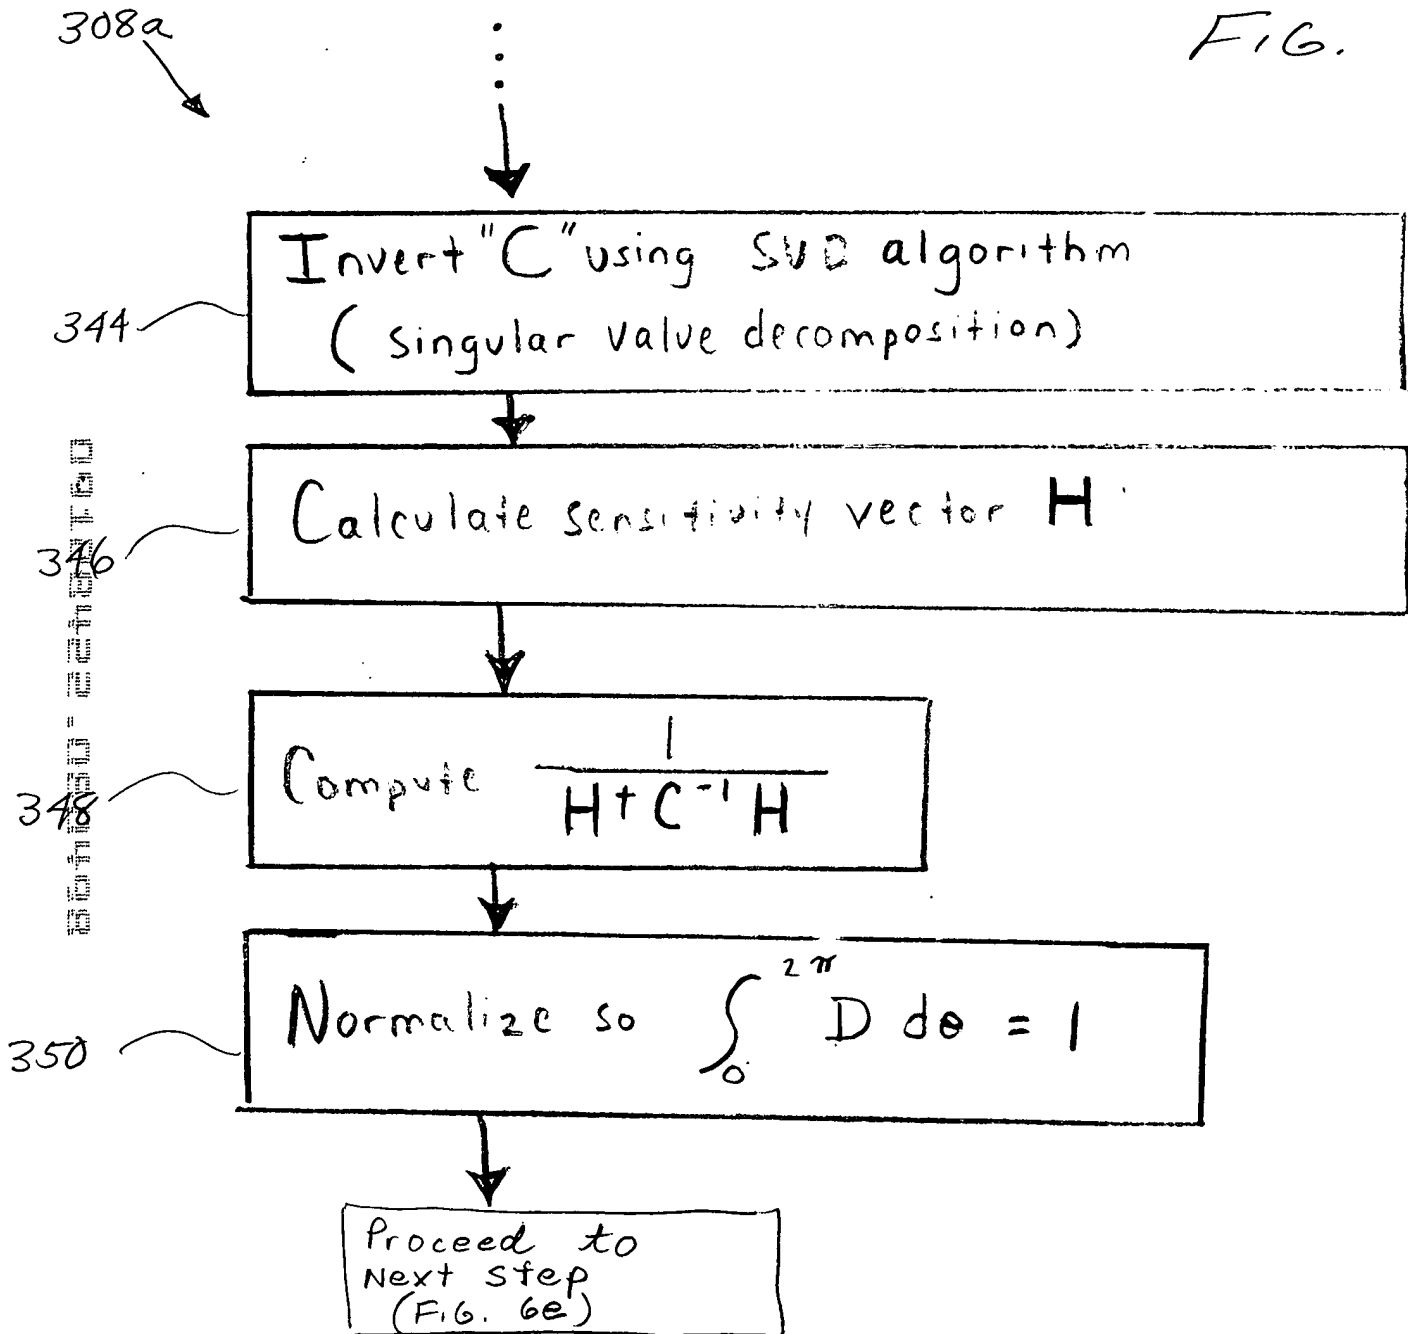 308a
FIG.
Invert "C" using SVD algorithm
(singular value decomposition)
344
Calculate sensitivity vector H
346
Compute 1 / H† C⁻¹ H
348
Normalize so ∫₀^2π D dθ = 1
350
Proceed to
Next step
(FIG. 6e)